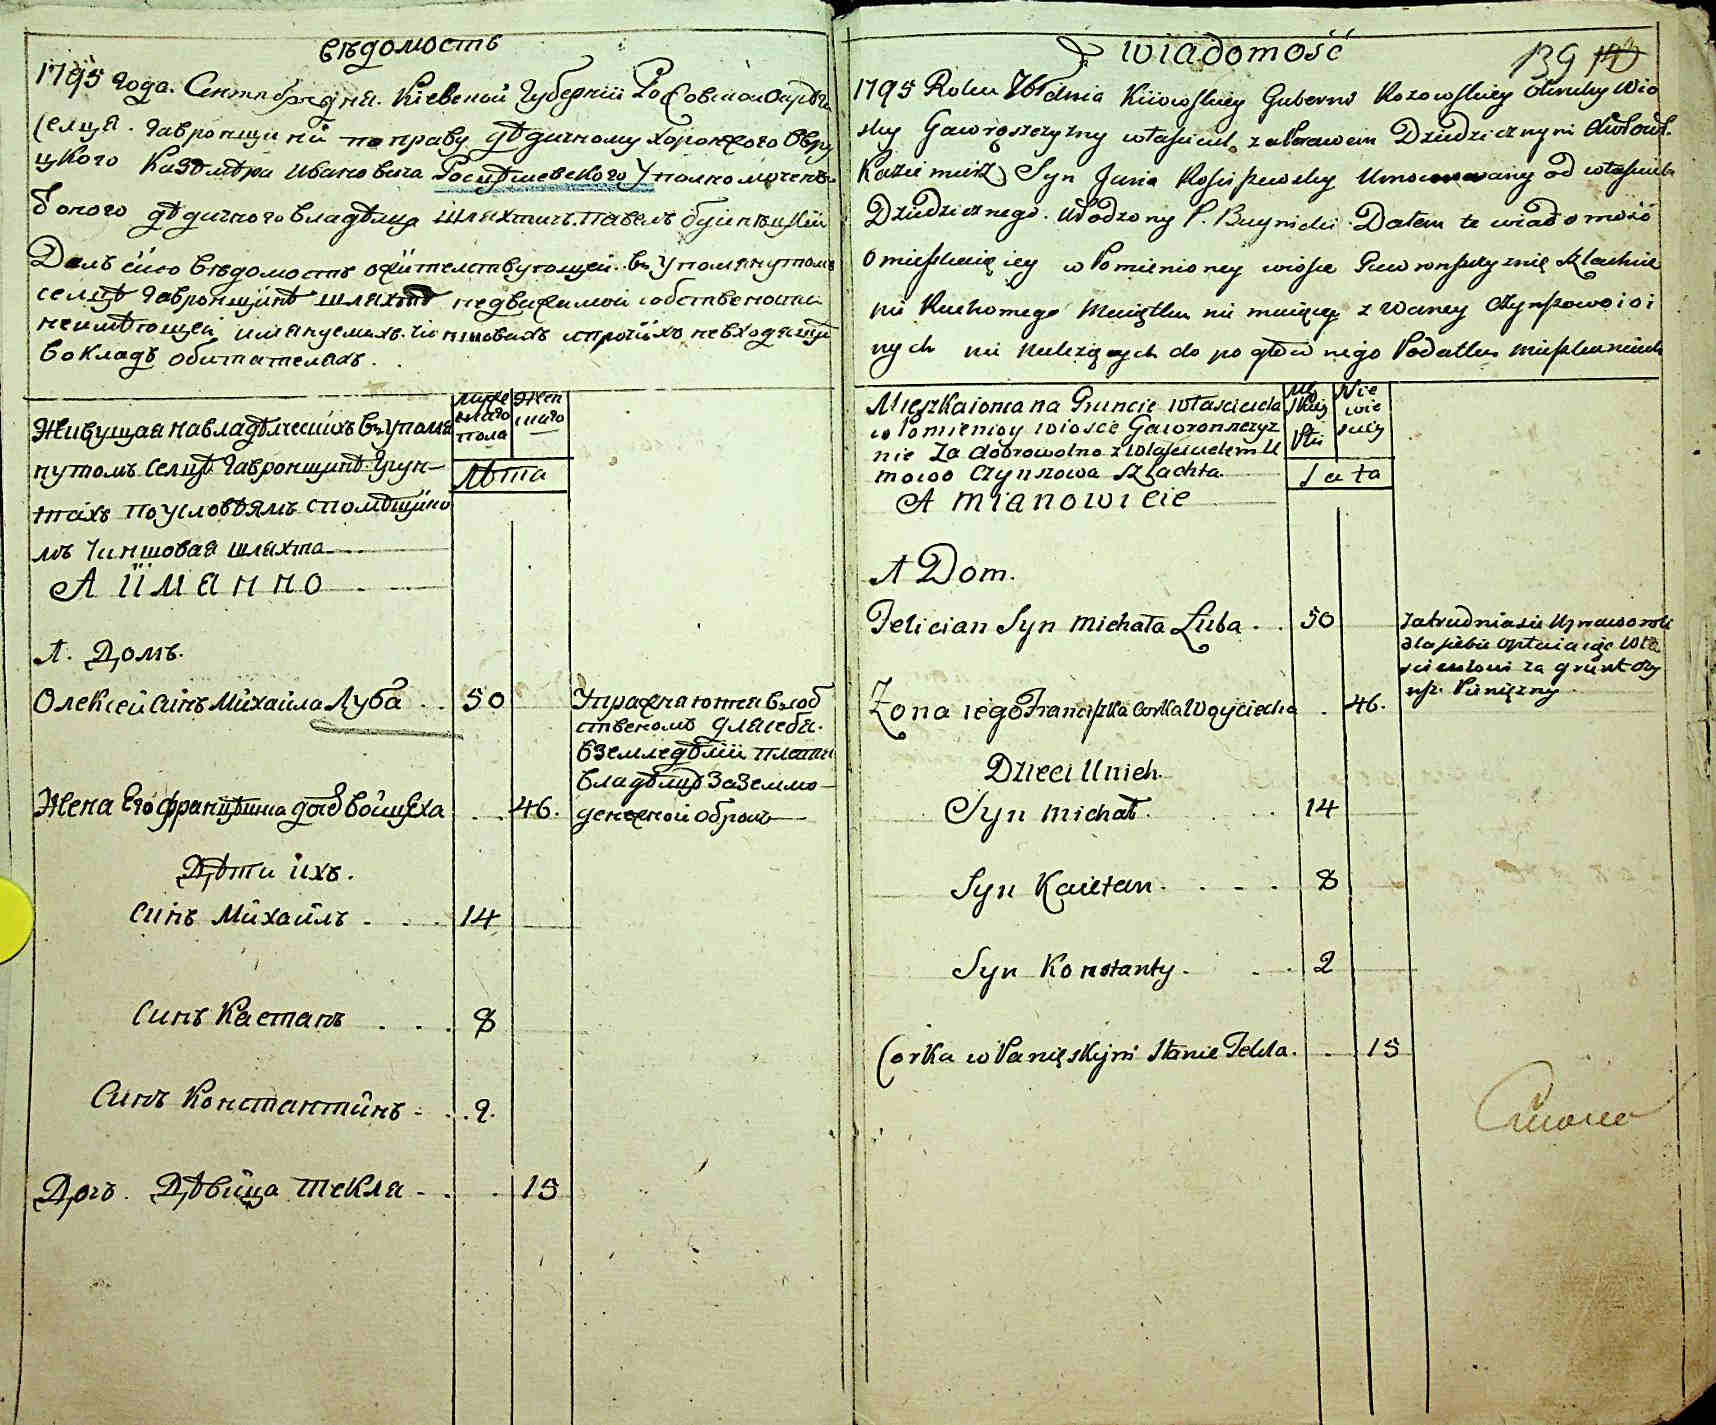 вѣдомость
1795 года. Сентября дня. Кіевской Губерніи
селца. Гавронщини по праву дѣдичному хоронжого Овру
цкого Казимѣра Ивановича Росцѣшевского Уполномочен
дѣдичного владѣлца шляхтичъ Павелъ Буйницкій
Далъ сию вѣдомость о жителствующей въ Упомянутомъ
селцѣ Гавронщинѣ шляхтѣ недвижимой собственности
неимѣющей имянуемихъ чиншовихъ и протчіихъ невходящи
в окладъ обитателяхъ.
муже
ского
пола
Жен
скаго
Живущая на владѣлческихъ въ упомя
нутомъ селцѣ Гавронщинѣ Грун-
тахъ по условіямъ с помѣщико
мъ Чиншовая шляхта
Лѣта
А ИМАННО
А. Домъ.
Олексей Синъ Михайла Луба . . 50
Упражняются в соб
ственомъ для себя
в земледѣліи платя
владѣлцу за землю
денежной оброкъ
Жена Его Францѣшка дочъ Войцеха . . 46.
Дѣти ихъ.
Синъ Михайлъ . . . 14
Синъ Каетанъ . . . 8
Синъ Константинъ . . 2.
Дочъ. Дѣвица Текля . . 15
wiadomość
139
1795 Roku dnia Kiiowskiey Gubernii okruhy wio
ski Gawrończyzny właściciel, za Prawem Dziedzicznym
Kazimierz Syn Jana Rościszewski Umocowany od właścicie
Dziedzicznego Urodzony P. Buynicki Dałem tę wiadomość
O mieszkaiącey w Pomienioney wiosce Gawronszczyznie Szlachcie
nie Ruchomego Maiątku nie maiącey zwaney czynszowo i
nych nie należących do pogłównego Podatku mieszkańcach
Mieszkaiąca na Gruncie właściciela
w Pomienioney wiosce Gawronszczyz
nie Za dobrowolno z właścicielem U
mowo Czynszowa Szlachta
A mianowicie
Męż
skiey
płci
Nie
wie
sciey
Lata
A Dom.
Felician Syn Michała Luba . . 50
Zatrudnia się Uprawo roli
dla siebie opłacaiąc wła
scicielowi za grunt czy
nsz Pienięzny
Zona iego Franciszka Corka Woyciecha . 46.
Dzieci Unich
Syn Michał . . . 14
Syn Kaietan . . . 8
Syn Konstanty . . . 2
Corka w Panięskym stanie Tekla. . 15